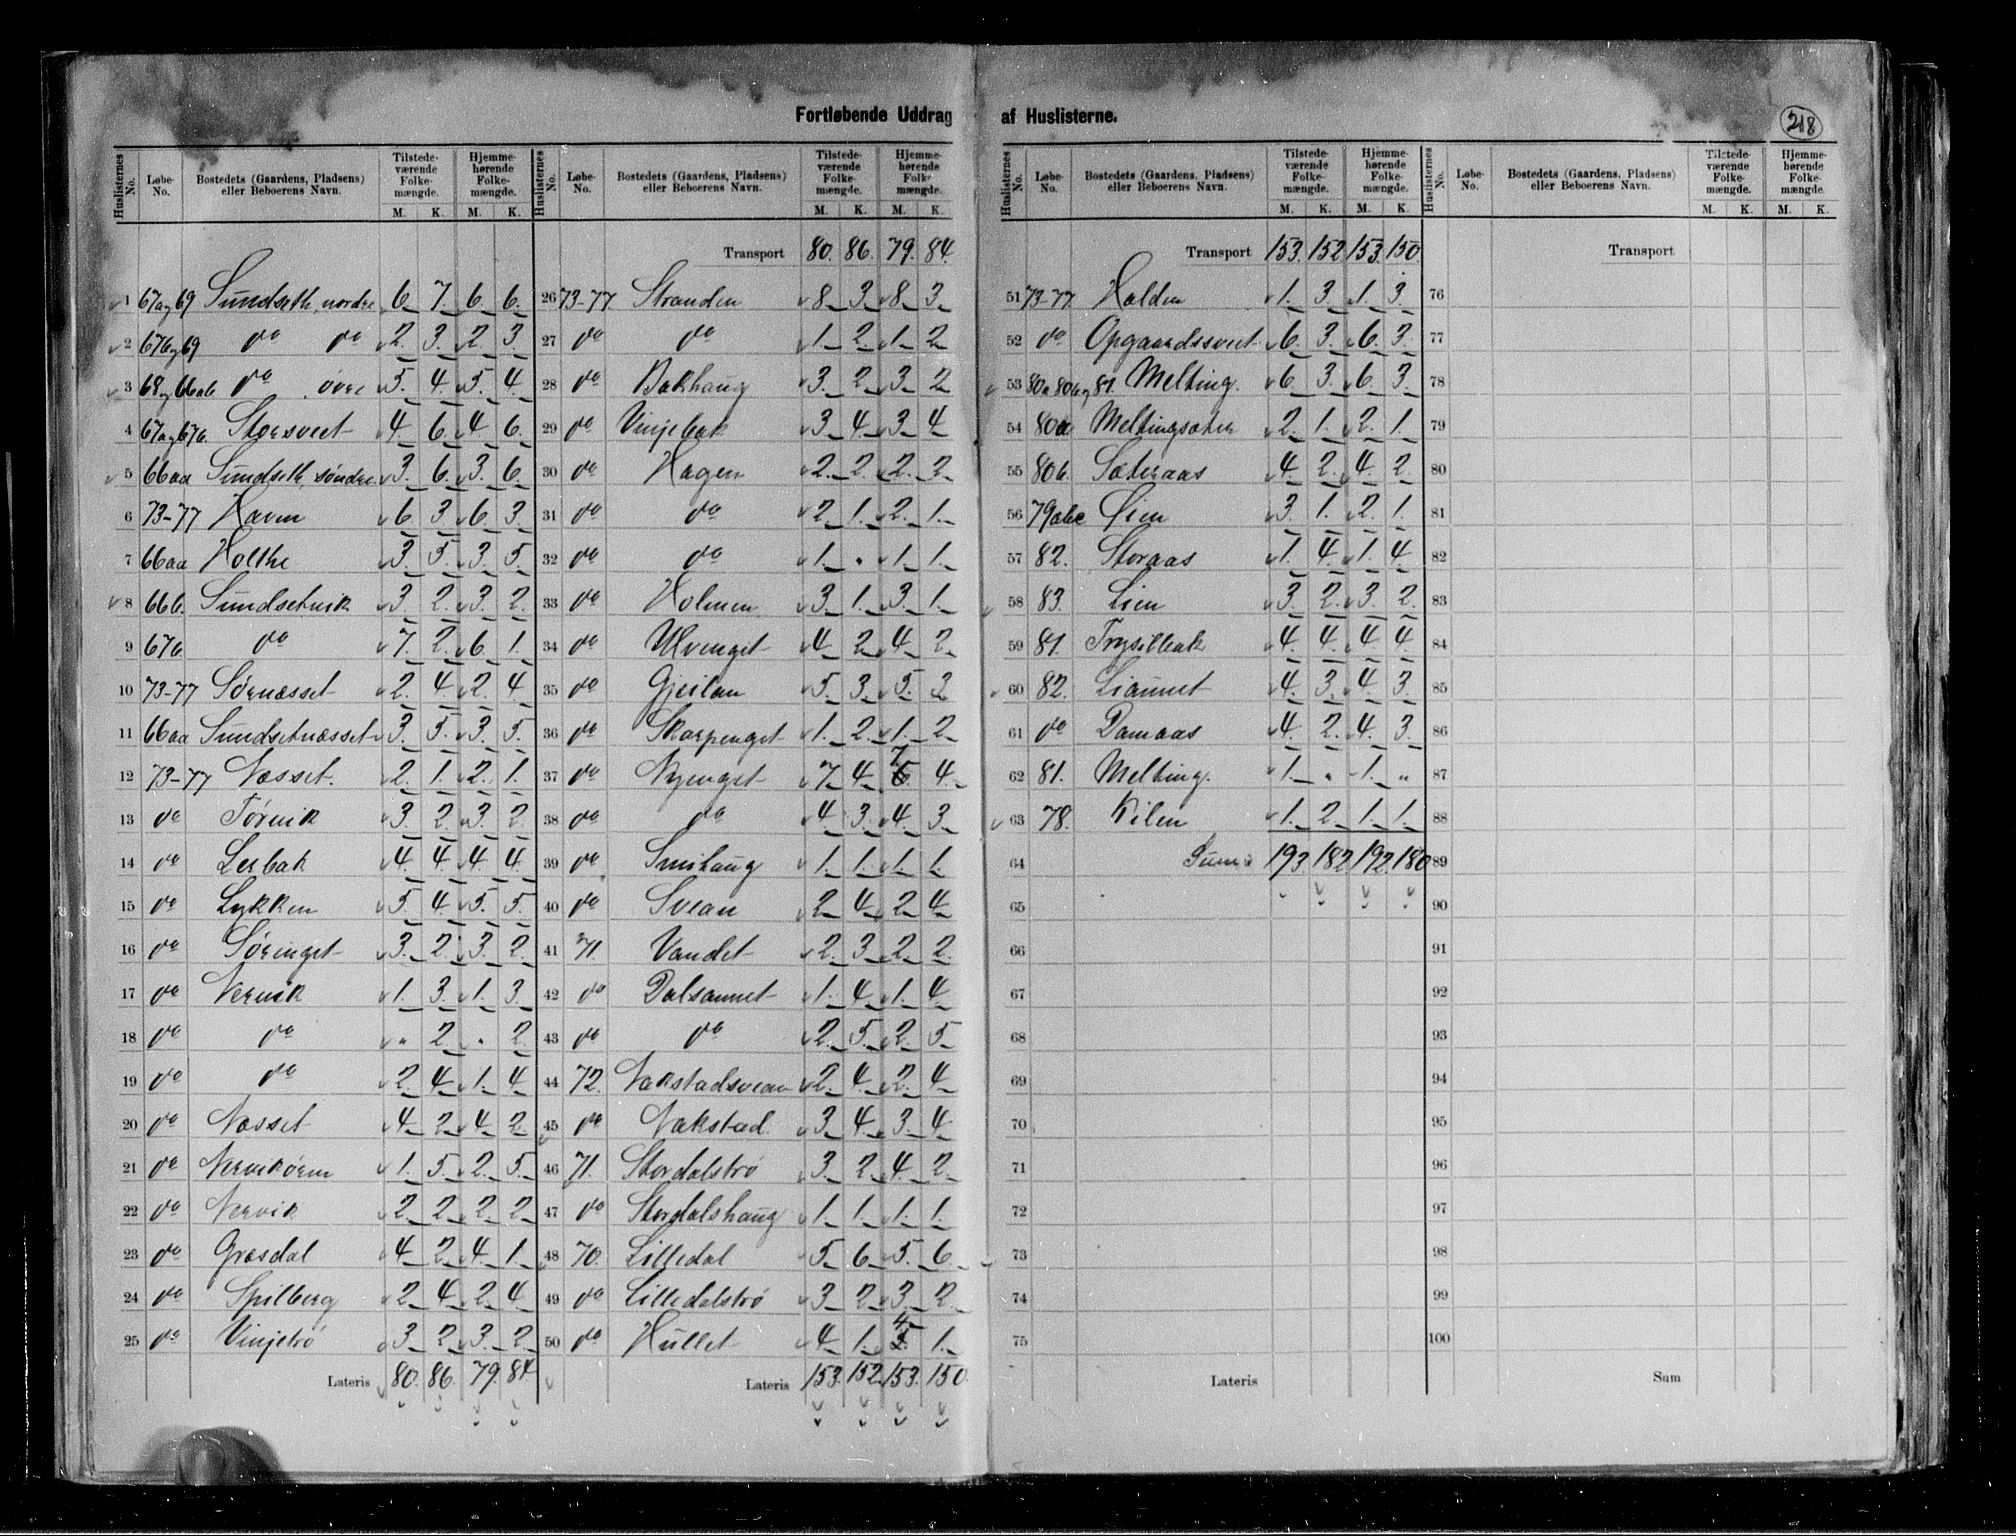 Fortløbende Uddrag af Huslisterne.
218
Huslisternes No. | Løbe-No. | Bostedets (Gaardens, Pladsens) eller Beboerens Navn. | Tilstedeværende Folkemængde. M. K. | Hjemmehørende Folkemængde. M. K.
1 67a og 69 Sundseth, nordre 6 7. 6. 6.
2 67b og 69 do do 2. 3. 2. 3.
3 68 og 66ab do, øvre 5. 4. 5. 4.
4 67a og 67b. Storsveet 4 6. 4 6.
5 66aa Sundseth, søndre 3. 6. 3. 6.
6 73-77 Havn 6. 3 6. 3.
7 66aa Holthe 3. 5. 3. 5.
8 66b. Sundsetvik 3. 2. 3. 2.
9 67b do 7. 2. 6. 1.
10 73-77 Sørnæsset 2. 4 2. 4
11 66aa Sundsetnæsset 3. 5. 3. 5.
12 73-77 Næsset. 2. 1. 2. 1.
13 do Tørvik 3. 2. 3. 2.
14 do Lerbak 4. 4. 4. 4
15 do Lykken 5. 4. 5. 5.
16 do Sørenget 3. 2. 3. 2.
17 do Nervik 1. 3. 1. 3.
18 do do " 2. " 2.
19 do do 2. 4. 1. 4.
20 do Næsset 4. 2. 4. 2.
21 do Nervikøren 1. 5. 2. 5.
22 do Nervik 2. 2. 2. 2.
23 do Græsdal 4. 2. 4. 1.
24 do Spilberg 2. 4. 2. 4.
25 do Vinjetrø 3. 2. 3. 2.
Lateris 80. 86. 79. 84
Huslisternes No. | Løbe-No. | Bostedets (Gaardens, Pladsens) eller Beboerens Navn. | Tilstedeværende Folkemængde. M. K. | Hjemmehørende Folkemængde. M. K.
Transport 80. 86. 79. 84.
26 73-77 Stranden 8. 3. 8. 3.
27 do do 1. 2. 1. 2
28 do Bakhaug 3. 2. 3. 2
29 do Vinjebak 3. 4. 3. 4
30 do Hagen 2. 2. 2. 2
31 do do 2. 1. 2. 1.
32 do do 1. " 1. 1.
33 do Holmen 3. 1. 3. 1.
34 do Ulvenget 4. 2 4. 2.
35 do Gjeilan 5. 3. 5. 3
36 do Skarpenget 1. 2. 1. 2
37 do Nyenget 7. 4. 7 4.
38 do do 4. 3. 4. 3
39 do Smihaug 1. 1. 1. 1.
40 do Svean 2. 4. 2. 4
41 71. Vandet 2. 3. 2. 2.
42 do Dalsaunet 1. 4. 1. 4.
43 do do 2. 5. 2. 5
44 72. Nakstadsvean 2. 4. 2. 4
45 do Nakstad 3. 4. 3. 4
46 71. Stordalstrø 3. 2. 4. 2.
47 do Stordalshaug 1. 1. 1. 1.
48 70. Lilledal 5. 6. 5. 6
49 do Lilledalstrø 3. 2. 3. 2.
50 do Hullet 4. 1. 4 1.
Lateris 153. 152. 153. 150.
Huslisternes No. | Løbe-No. | Bostedets (Gaardens, Pladsens) eller Beboerens Navn. | Tilstedeværende Folkemængde. M. K. | Hjemmehørende Folkemængde. M. K.
Transport 153. 152 153. 150.
51 73-77 Halden 1. 3. 1. 3.
52 do Opgaardssveet 6. 3. 6. 3.
53 80a 80b og 81. Melting. 6. 3. 6. 3.
54 80a Meltingsæter 2. 1. 2. 1.
55 80b. Sæteraas 4. 2. 4. 2.
56 79abc Lien 3. 1. 2. 1.
57 82. Storaas 1. 4. 1. 4.
58 83. Lien 3. 2. 3. 2.
59 81. Trysilbak 4. 4. 4. 4
60 82. Liaunet 4. 3. 4. 3.
61 do Damaas 4. 2. 4. 3.
62 81. Melting. 1. " 1. "
63 78. Kilen 1. 2. 1. 1.
64 Sum 193. 182. 192. 180
65
66
67
68
69
70
71
72
73
74
75
Lateris
Huslisternes No. | Løbe-No. | Bostedets (Gaardens, Pladsens) eller Beboerens Navn. | Tilstedeværende Folkemængde. M. K. | Hjemmehørende Folkemængde. M. K.
Transport
76
77
78
79
80
81
82
83
84
85
86
87
88
89
90
91
92
93
94
95
96
97
98
99
100
Sum